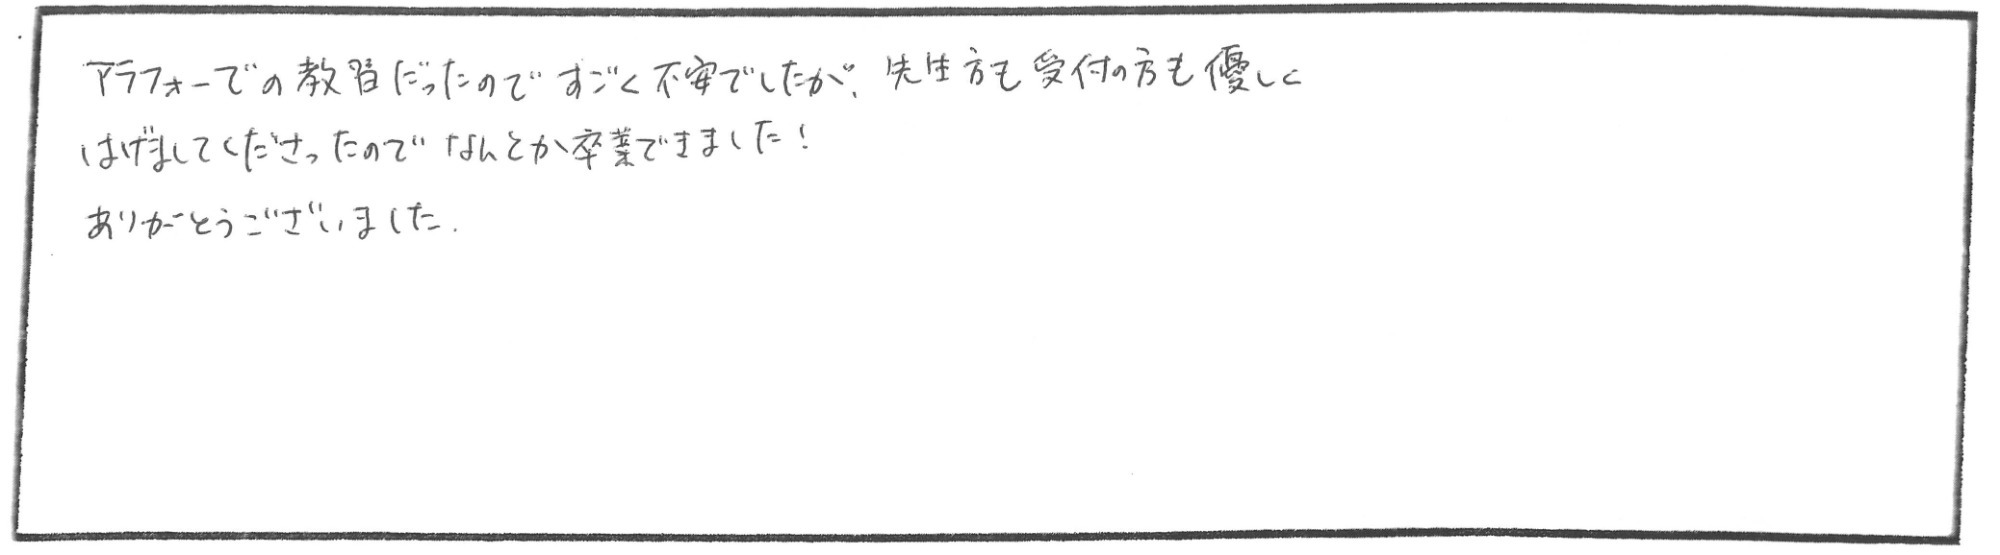 アラフォーでの教習だったのですごく不安でしたが、先生方も受付の方も優しく
はげましてくださったのでなんとか卒業できました！
ありがとうございました.